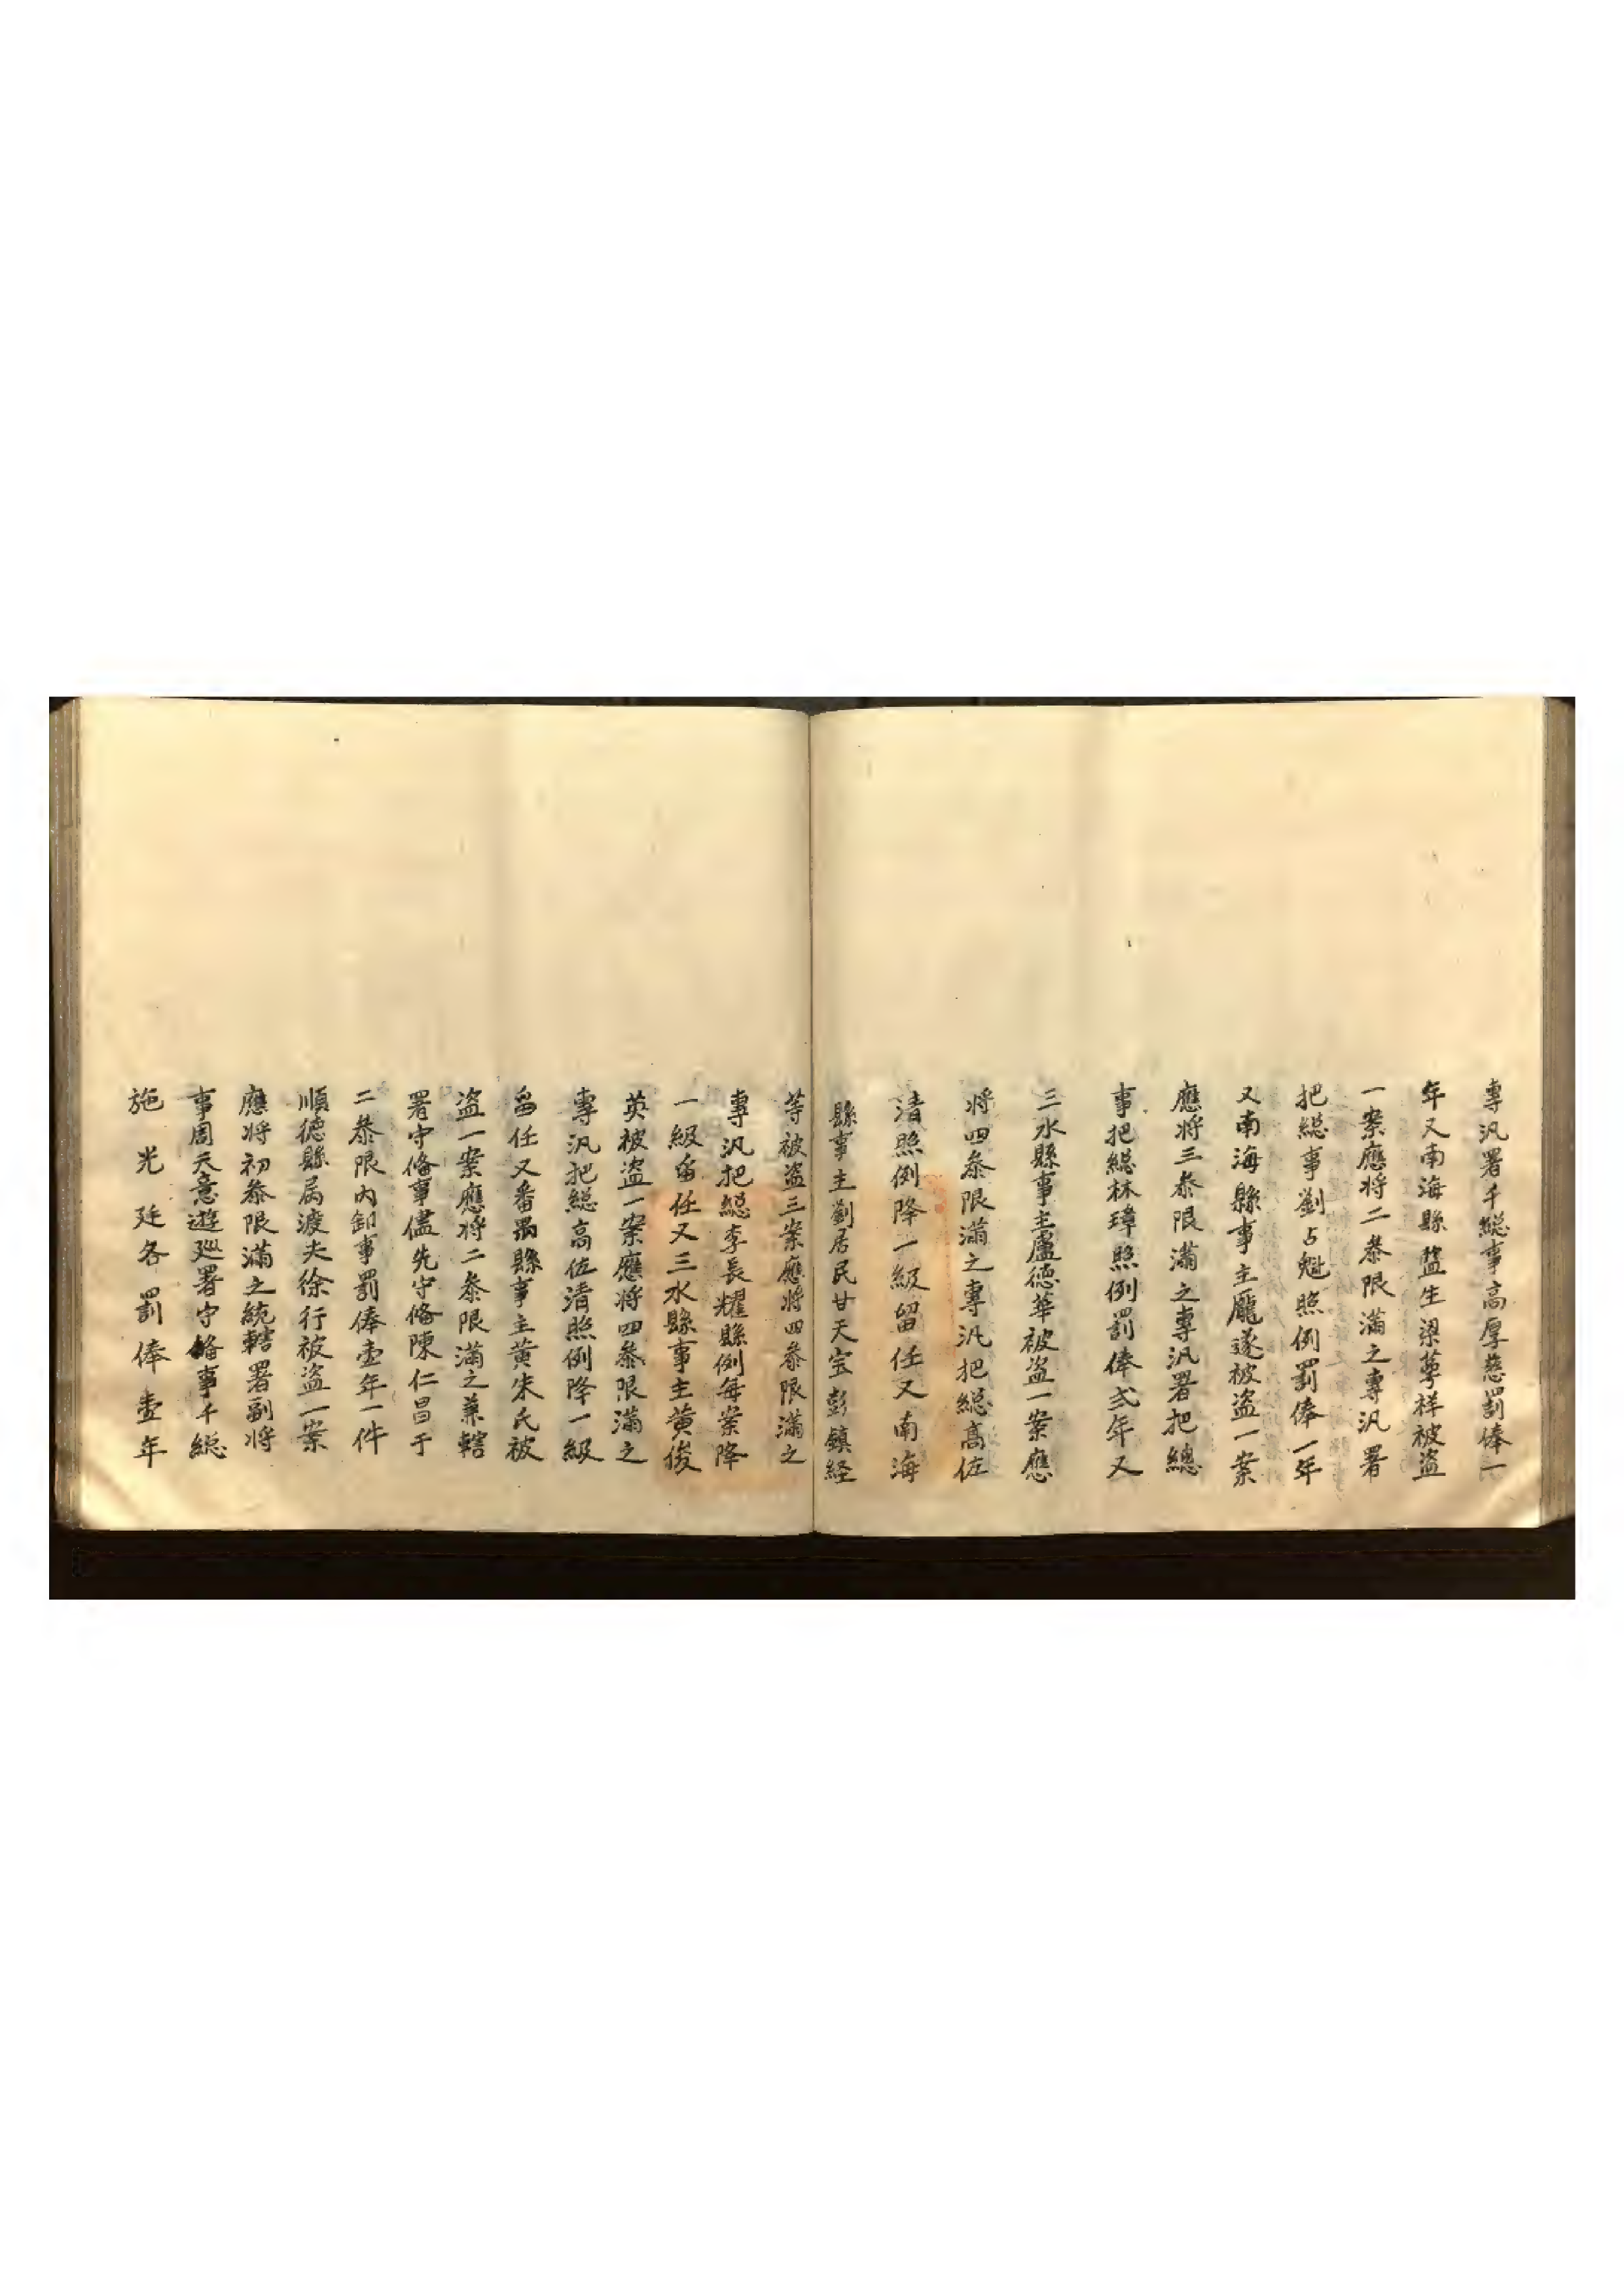 專汎署千總事高厚慈罰俸一
年又南海縣監生梁萼祥被盜
一案應將二叅限滿之專汎署
把総事劉占魁照例罰俸一年
又南海縣事主龐遂被盜一案
應將三叅限滿之專汎署把總
事把総林璋照例罰俸弍年又
三水縣事主盧德華被盜一案應
將四叅限滿之專汎把総高佐
清照例降一級留任又南海
縣事主劉居民甘天宝彭鎮経
等被盜三案應將四叅限滿之
專汎把総李長耀縣例每案降
一級畱任又三水縣事主黄俊
英被盜一案應將四叅限滿之
專汎把総高佐清照例降一級
畱任又番禺縣事主黄朱氏被
盜一案應將二叅限滿之兼轄
署守俻事儘先守俻陳仁昌于
二叅限內卸事罰俸壹年一件
順德縣屬渡夫徐行被盜一案
應將初叅限滿之統轄署副將
事周天意遊廵署守俻事千総
施光廷各罰俸壹年